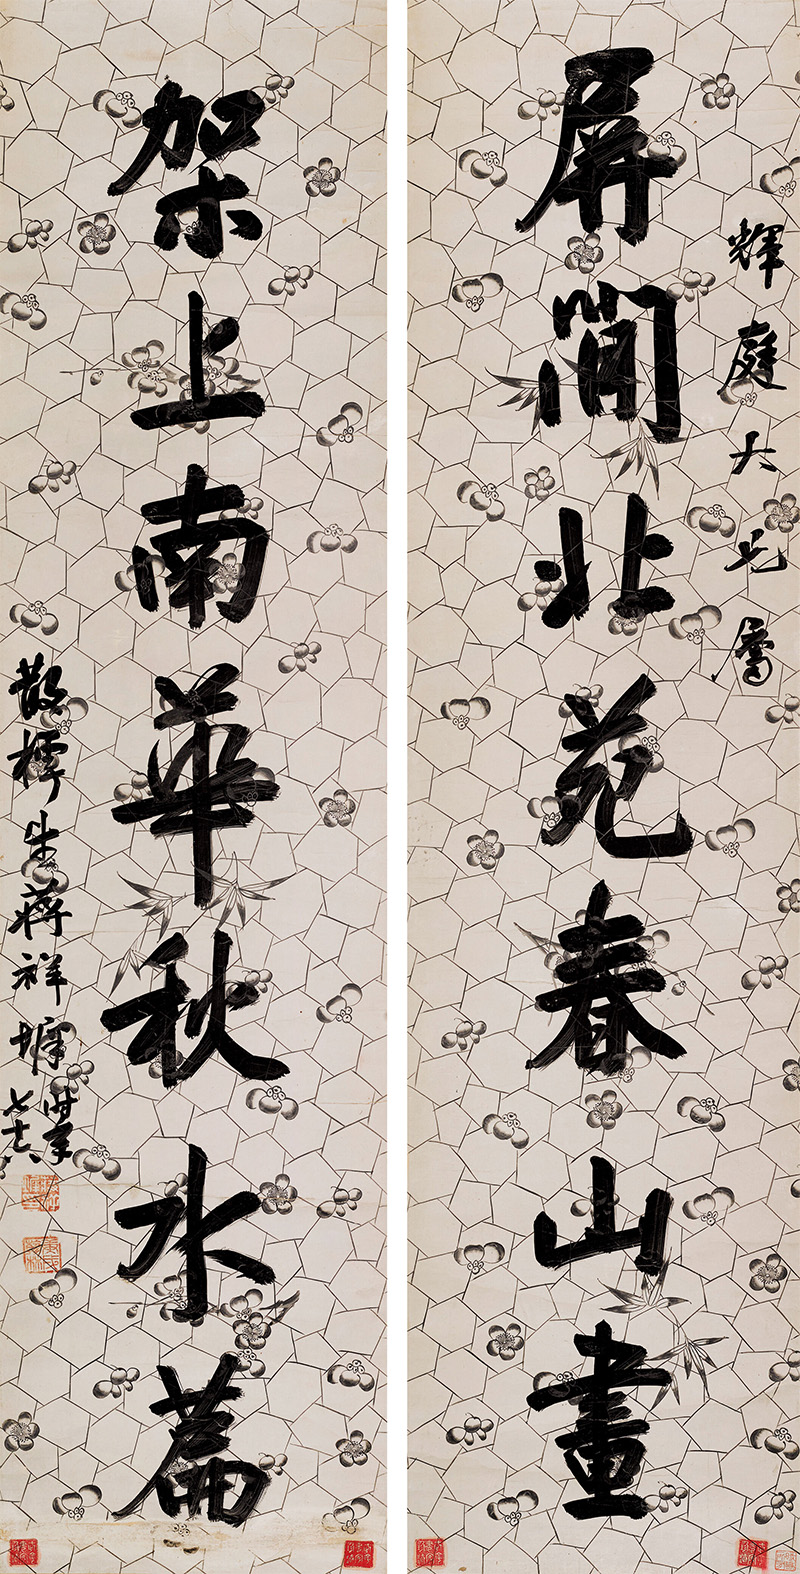 輝庭大兄屬
屏間北苑春山畫
架上南華秋水篇
散樗生蔣祥墀時年
七十六